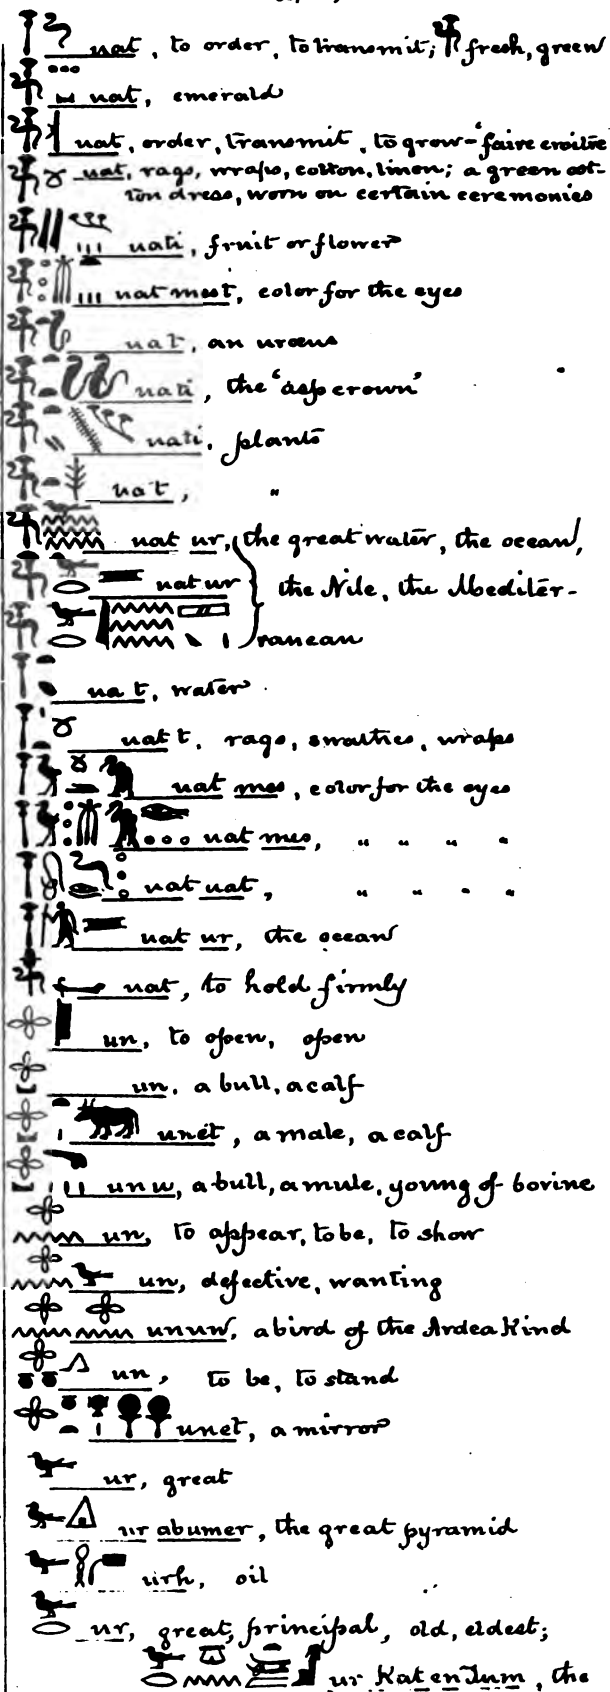 uat, to order, to transmit; fresh, green
uat, emerald
uat, order, transmit, to grow-'faire croitre
uat, rags, wraps, cotton, linen; a green cot-
ton dress, worn on certain ceremonies
uati, fruit or flower
uat mest, color for the eyes
uat, an uræus
uati, the 'asp crown'
uati, plants
uat, "
uat ur, the great water, the ocean,
uat ur the Nile, the Mediter-
ranean
ua t, water
uat t, rags, swathes, wraps
uat mes, color for the eyes
uat mes, " " " "
uat uat, " " " "
uat ur, the ocean
uat, to hold firmly
un, to open, open
un, a bull, a calf
unet, a male, a calf
unu, a bull, a mule, young of bovine
un, to appear, to be, to show
un, defective, wanting
unuu, a bird of the Ardea Kind
un, to be, to stand
unet, a mirror
ur, great
ur abumer, the great pyramid
urh, oil
ur, great, principal, old, eldest;
ur Kat en Tum, the